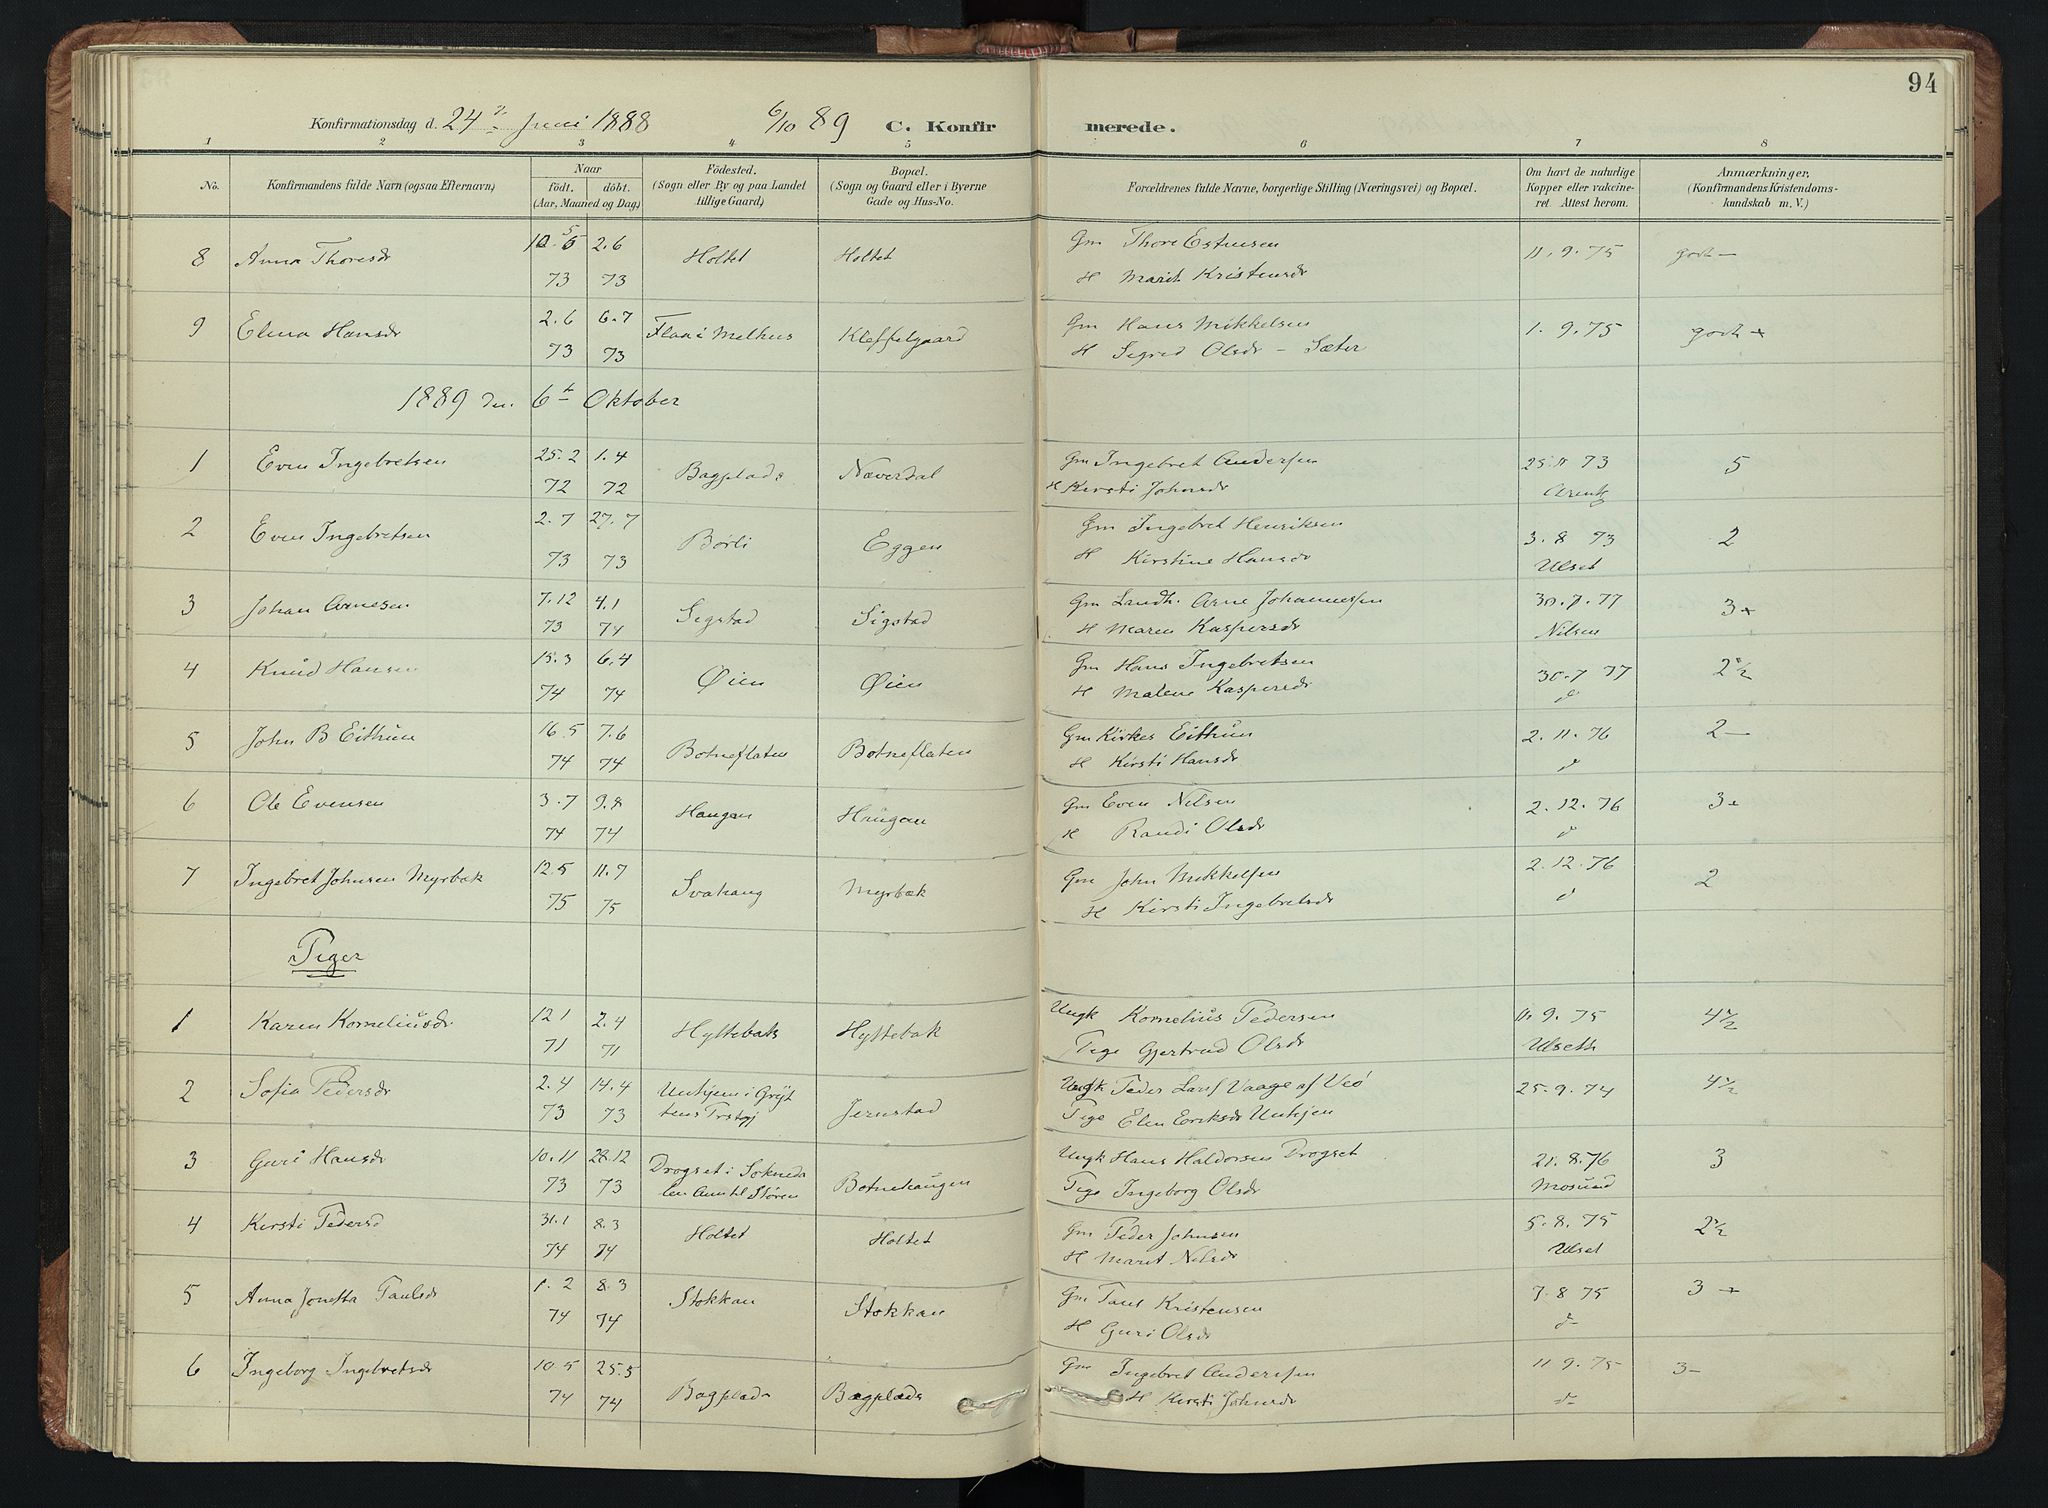 94
Konfirmationsdag d. 24 Juni 1888 6/10 89 C. Konfirmerede.
1 2 3 4 5 6 7 8
No.
Konfirmandens fulde Navn (ogsaa Efternavn)
Naar
födt. döbt.
(Aar, Maaned og Dag)
Födested.
(Sogn eller By og paa Landet
tillige Gaard)
Bopæl.
(Sogn og Gaard eller i Byerne
Gade og Hus-No.
Forældrenes fulde Navne, borgerlige Stilling (Næringsvei) og Bopæl.
Om havt de naturlige
Kopper eller vakcine-
ret. Attest herom.
Anmærkninger,
(Konfirmandens Kristendoms-
kundskab m. V.)
8 Anna Thoresdr 2.6 Holtet Holtet Gm Thore Estensen 11.9.75 godt -
73 73 H Marit Kristensdr
9 Elena Hansdr 2.6 6.7 Flaa i Melhus Kleffelgaard Gm Hans Mikkelsen 1.9.75 godt +
73 73 H Sigrid Olsdr - Sæter
1889 den 6te Oktober
1 Even Ingebretsen 25.2 1.4 Bagplads Næverdal Gm Ingebret Anderssen 73 5
72 72 H Kirsti Johnsdr Arentz
2 Even Ingebretsen 2.7 27.7 Börli Eggen Gm Ingebret Henriksen 3.8 73 2
73 73 H Kirstine Hansdr Ulset
3 Johan Arnesen 7.12 4.1 Sigstad Sigstad Gm Landh. Arne Johannessen 30.7.77 3+
73 74 H Maren Kaspersdr Nilsen
4 Knud Hansen 15.3 6.4 Øien Øien Gm Hans Ingebretsen 30.7 77 2½
74 74 H Malene Kaspersdr d
5 John B Eithun 16.5 7.6 Botneflaten Botneflaten Gm Kirkes Eithun 2.11.76 2-
74 74 H Kirsti Hansdr d
6 Ole Evensen 3.7 9.8 Haugan Haugan Gm Even Nilsen 2.12.76 3+
74 74 H Randi Olsdr d
7 Ingebret Johnsen Myrbæk 12.5 11.7 Svahaug Myrbæk Gm John Mikkelsen 2.12.76 2
75 75 H Kirsti Ingebretsdr d
Piger
1 Karen Korneliusdr 12 1 2.4 Hyttebak Hyttebak Ungk Kornelius Pedersen 11.9.75 4½
71 71 Pige Gjertrud Olsdr Ulseth
2 Sofia Pedersdr 2.4 14.4 Unhjem i Gryt Jernstad Ungk Peder Lars Vaage af Veö 25.9.74 4½
73 73 tens Prstgj Pige Elen Eriksdr Unhjem
3 Guri Hansdr 10.11 28.12 Drogset i Sokneda Botnehaugen Ungk Hans Haldorsen Drogset 21.8.76 3
73 73 len Ann til Stören Pige Ingeborg Olsdr Mosund
4 Kirsti Pedersd 31.1 8.3 Holtet Holtet Gm Peder Johnsen 5.8.75 2½
74 74 H Marit Nilsdr Ulset
5 Anna Jonetta Paulsdr 1.2 8.3 Stokkan Stokkan Gm Paul Kristensen 7.8 75 3 +
74 74 H Guri Olsdr d
6 Ingeborg Ingebretsdr 10.5 25.5 Bagplads Bagplads Gm Ingebret Anderssen 11 9.75 3-
74 74 H Kirsti Johnsdr d